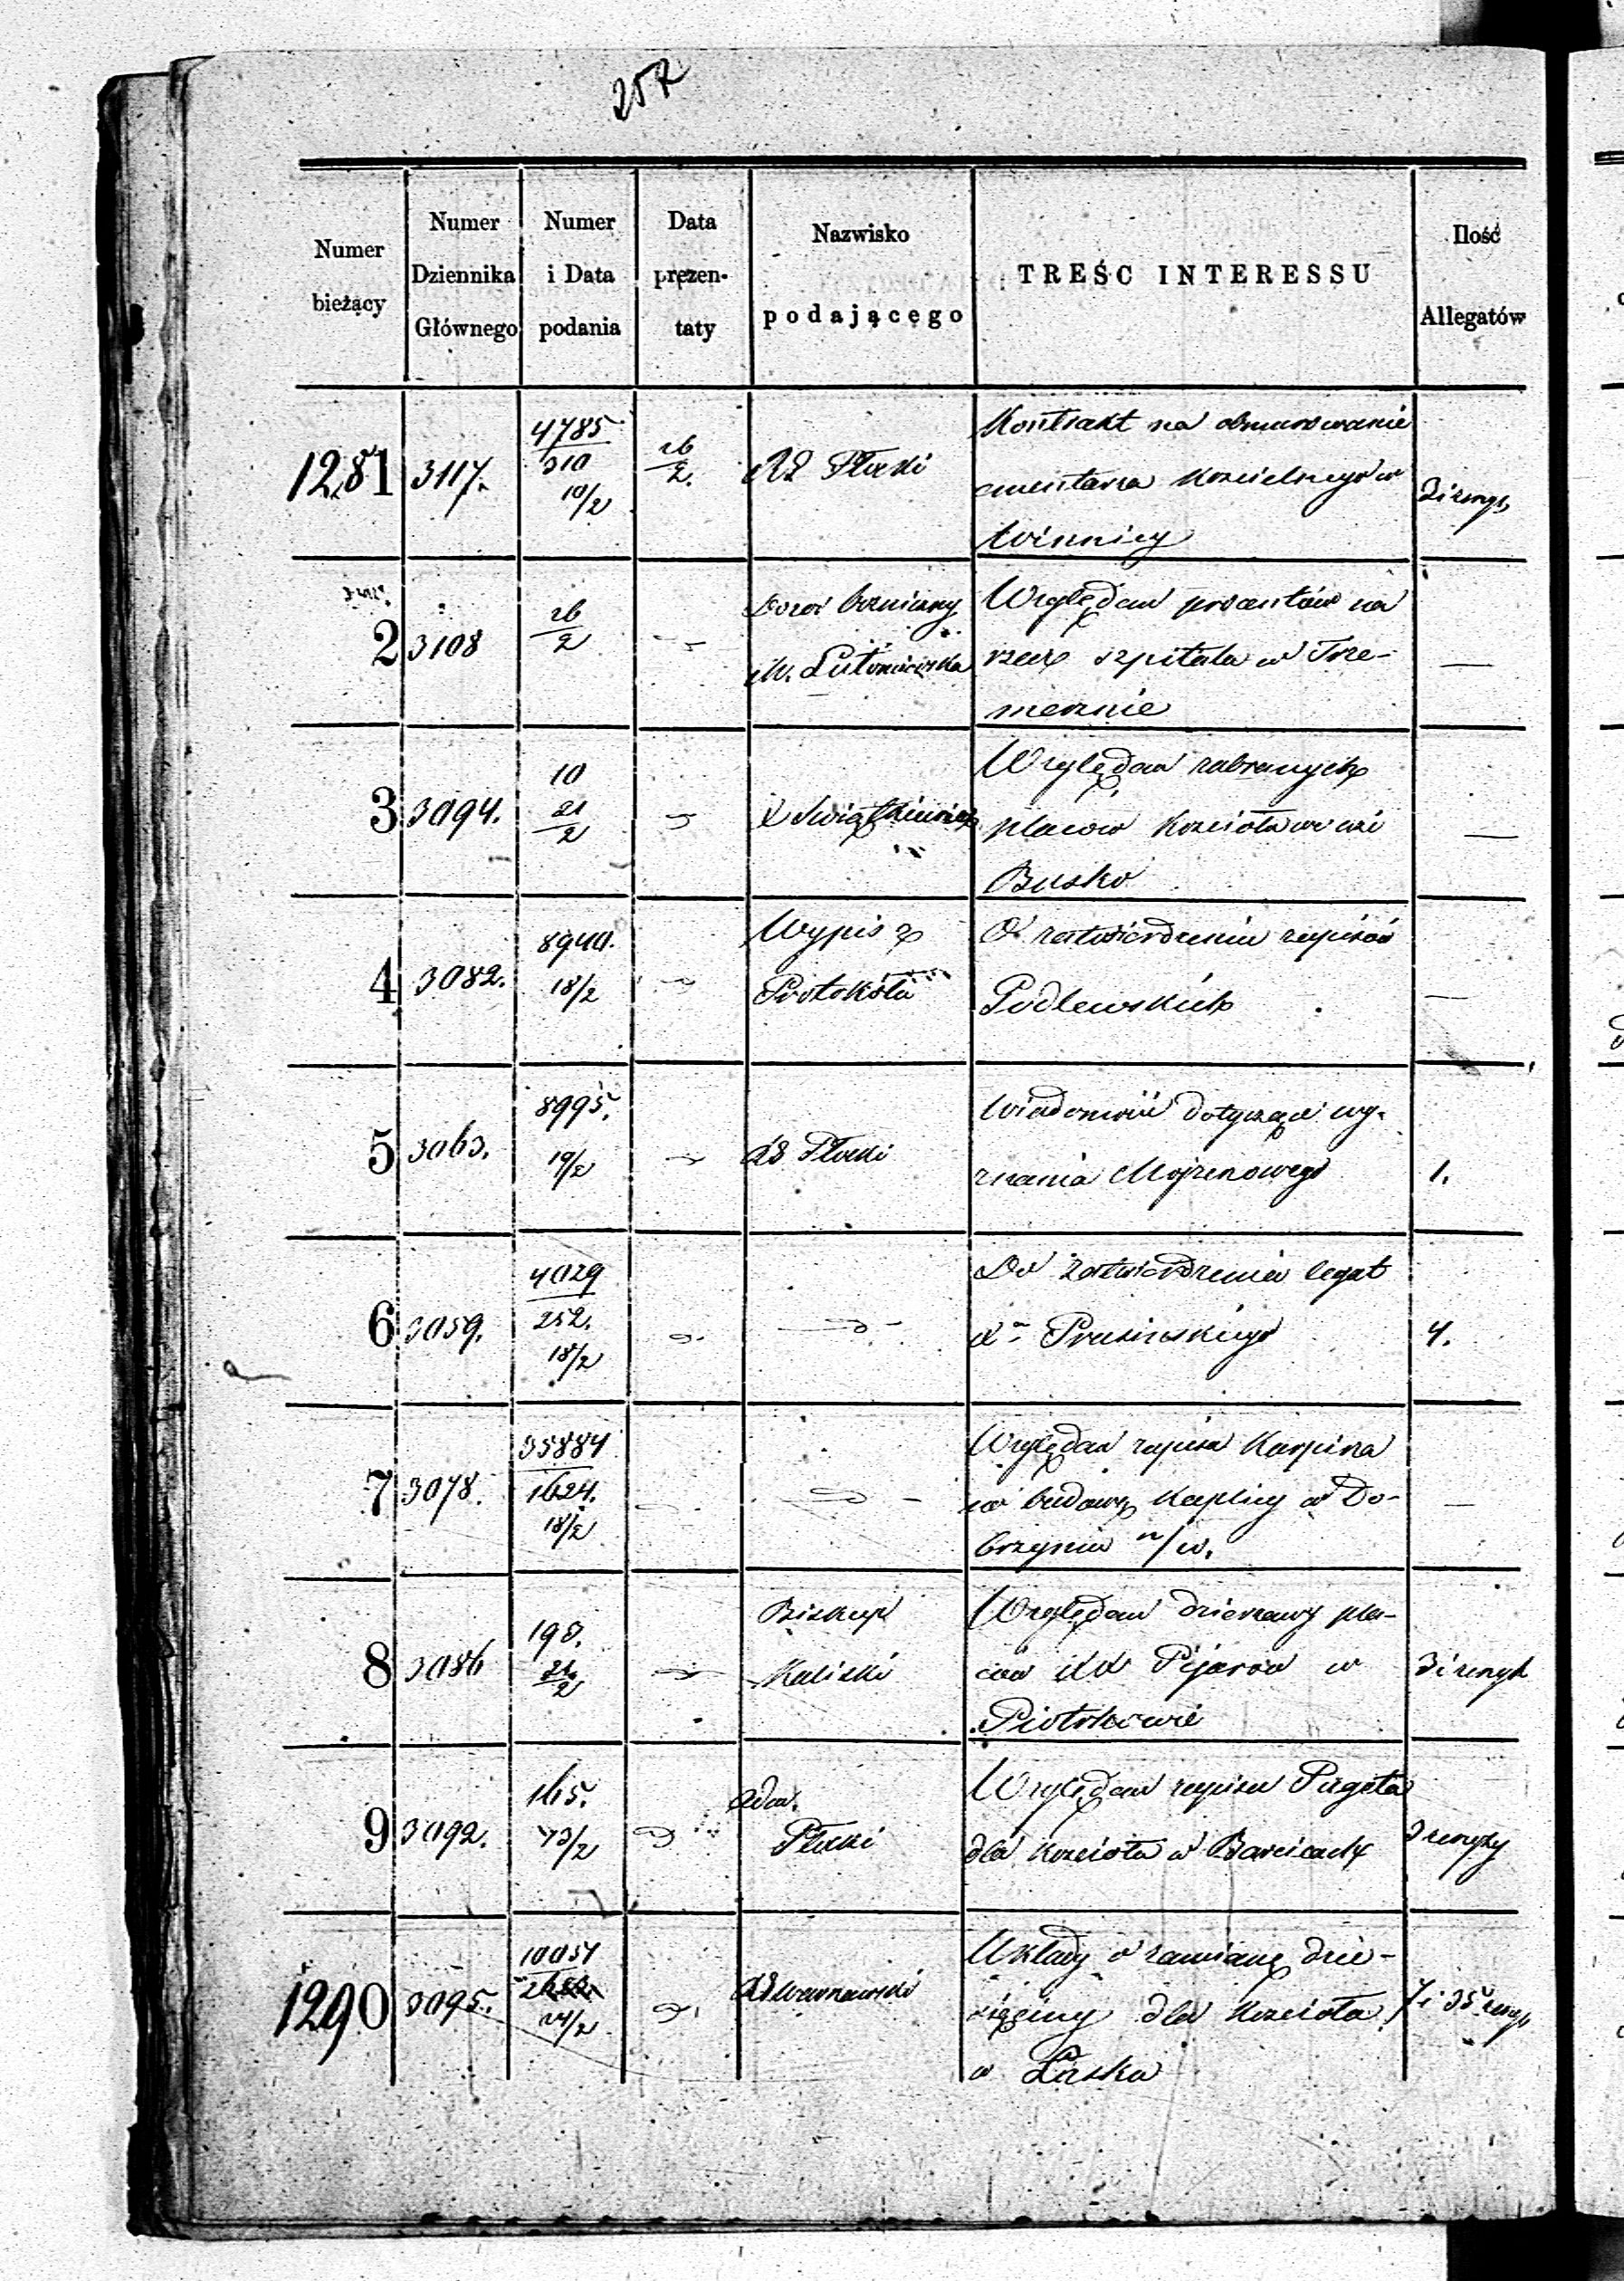 257
Numer bieżący
Numer Dziennika Głównego
Numer i Data podania
Data prezen- taty
Nazwisko podającego
TREŚC INTERESSU
Ilość Allegatów
1281 3117. 4785/310 10/2 26/2. RG Płocki
Kontrakt na obmurowanie
cmentarza Kościelnego w
Winnicy
2 3108 26/2 Dozór Bożniczny
M. Lutomierska
Względem procentów na
rzecz szpitala w Trze-
mesznie
3 3094. 10 21/2 X Świątkiewicz
Względem zabranych
placów Kościoła we wsi
Busko
4 3082. 8940. 18/2 Wypis z
Protokółu
O zatwierdzeniu zapisów
Podlewskich
5 3063. 8995. 19/2 RG Płocki
Wiadomość dotycząca wy-
znania Mojżeszowego 1.
6 3059. 4029/252. 18/2
Do zatwierdzenia legat
Xa Prusinskiego 4.
7 3078. 35884/1624. 18/2
Względem zapisu Karpina
na budowę Kaplicy w Do-
brzyniu n/w.
8 3086 190. 21/2 Biskup
Kaliski
Względem dzierzawy pla-
ców XX Pijarów w
Piotrkowie
9 3092. 165. 23/2 Adm.
Płocki
Względem zapisu Pageta
dla Kościoła w Barcicach
1290 3095. 10054 24/2 RG Warszawski
Układy o zamianę dzie-
sięciny dla Kościoła
w Łasku